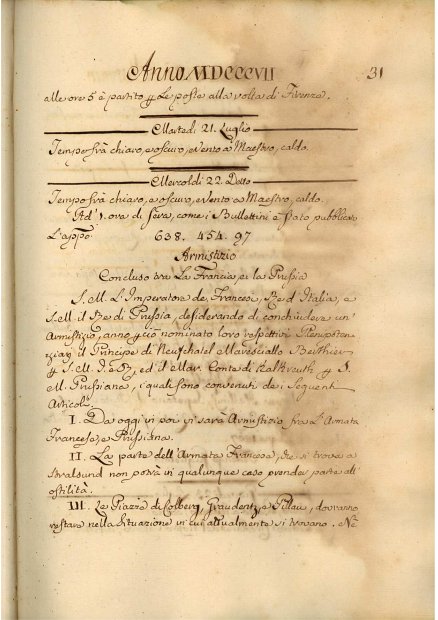 Anno MDCCCVII 31
alle ore 5 è partito p Le poste alla volta di Firenze.
Martedì 21. Luglio
Tempo frà chiaro, e oscuro, e Vento a Maestro, caldo.
Mercoldì 22. Detto
Tempo frà chiaro, e oscuro, e Vento a Maestro, caldo.
Ad' 1. ora di sera, come i Bullettini è stato pubblicato
L'app.º 638. 454. 97
Armistizio
Concluso tra La Francia, e la Prussia
S. M. L'Imperatore de Francesi, Rè d'Italia, e
S. M. il Rè di Prussia, desiderando di conchiudere un'
Armistizio, anno p ciò nominato loro respettivi Plenipoten-
ziarj il Principe di Neufchatel Maresciallo Berthier
p S. M. ed il Mar. Conte di Kalkreuth p S.
M. Prussiana, i quali sono convenuti de i Seguenti
Articoli.
I. Da oggi in poi vi sarà Armistizio fra l'Armata
Francese, e Prussiana.
II. La parte dell'Armata Francese, che si trova a
Stralsund non potrà in qualunque caso prender parte all'
ostilità.
III. Le Piazze di Colberg, Graudentz, e Pillau, dovranno
restare nella Situazione in cui attualmente si trovano. Nè